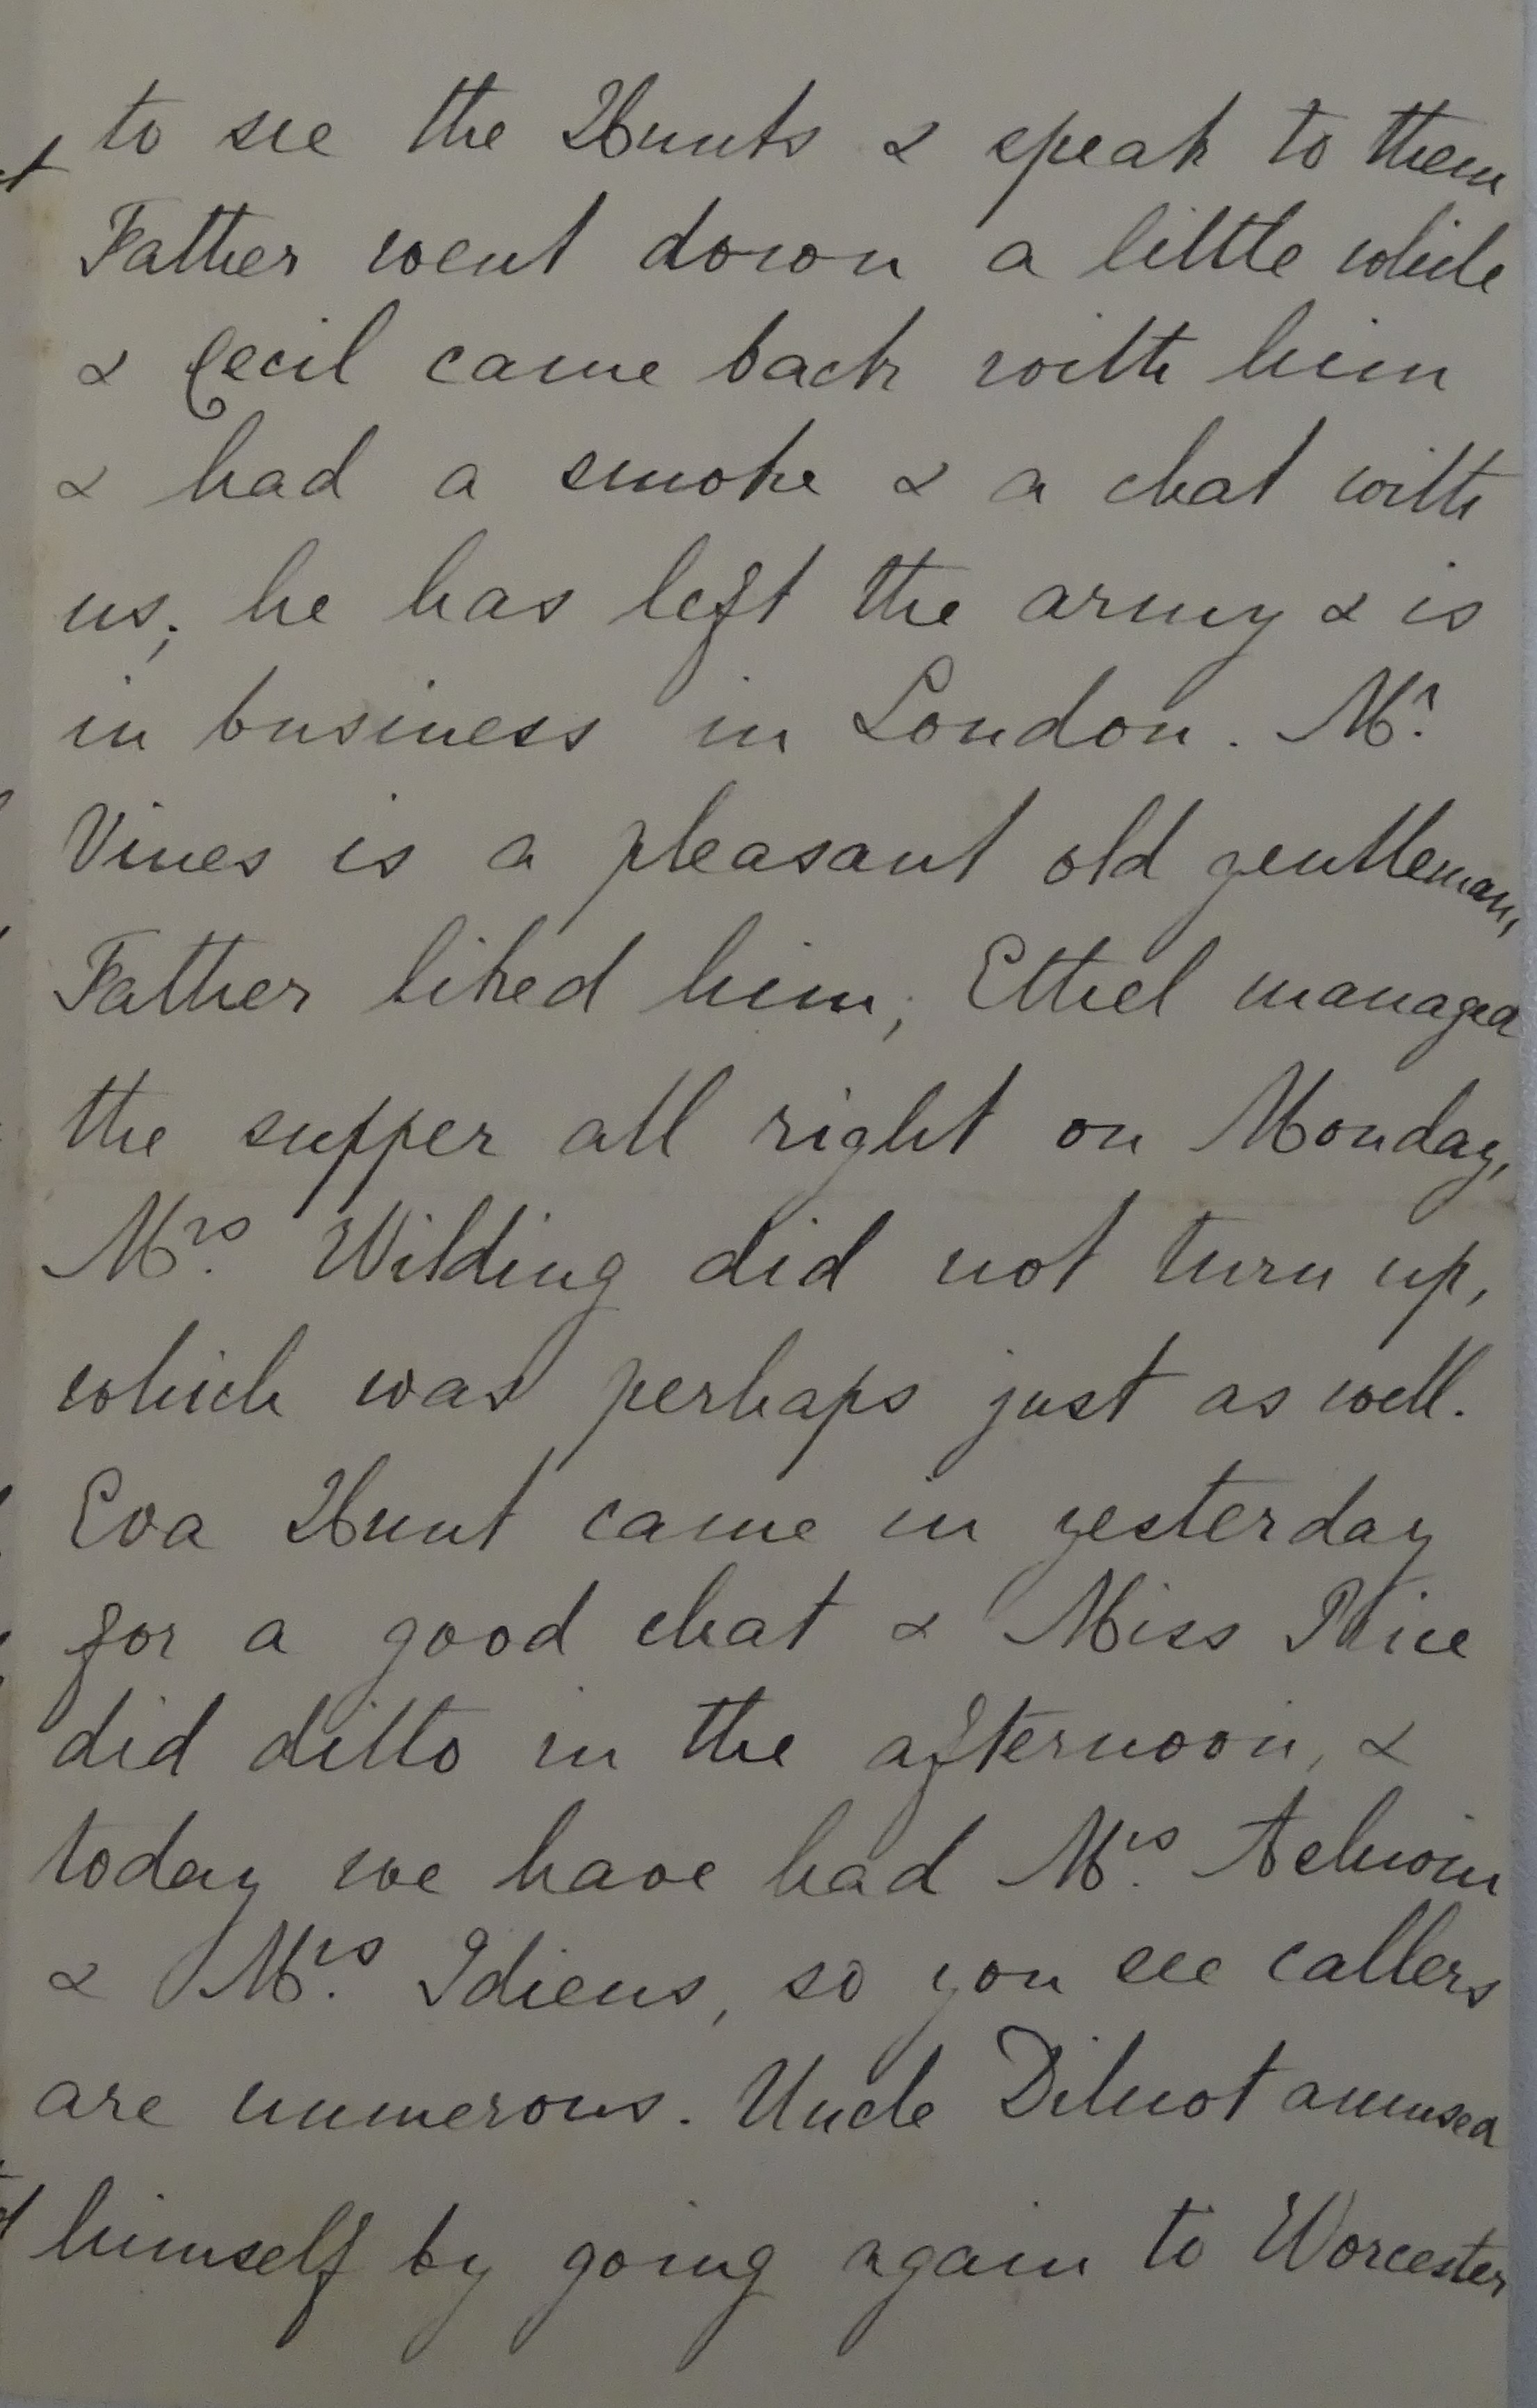 to see the Hunts & speak to them
Father went down a little while
& Cecil came back with him
& had a smoke & a chat with
us; he has left the army & is
in business in London. Mr.
Vines is a pleasant old gentleman,
Father liked him; Ethel managed
the supper all right on Monday,
Mrs. Wilding did not turn up,
which was perhaps just as well.
Eva Hunt came in yesterday
for a good chat & Miss
did ditto in the afternoon, &
today we have had Mrs.
& Mrs. Idiens, so you see callers
are numerous. Uncle Dilnot amused
himself by going again to Worcester